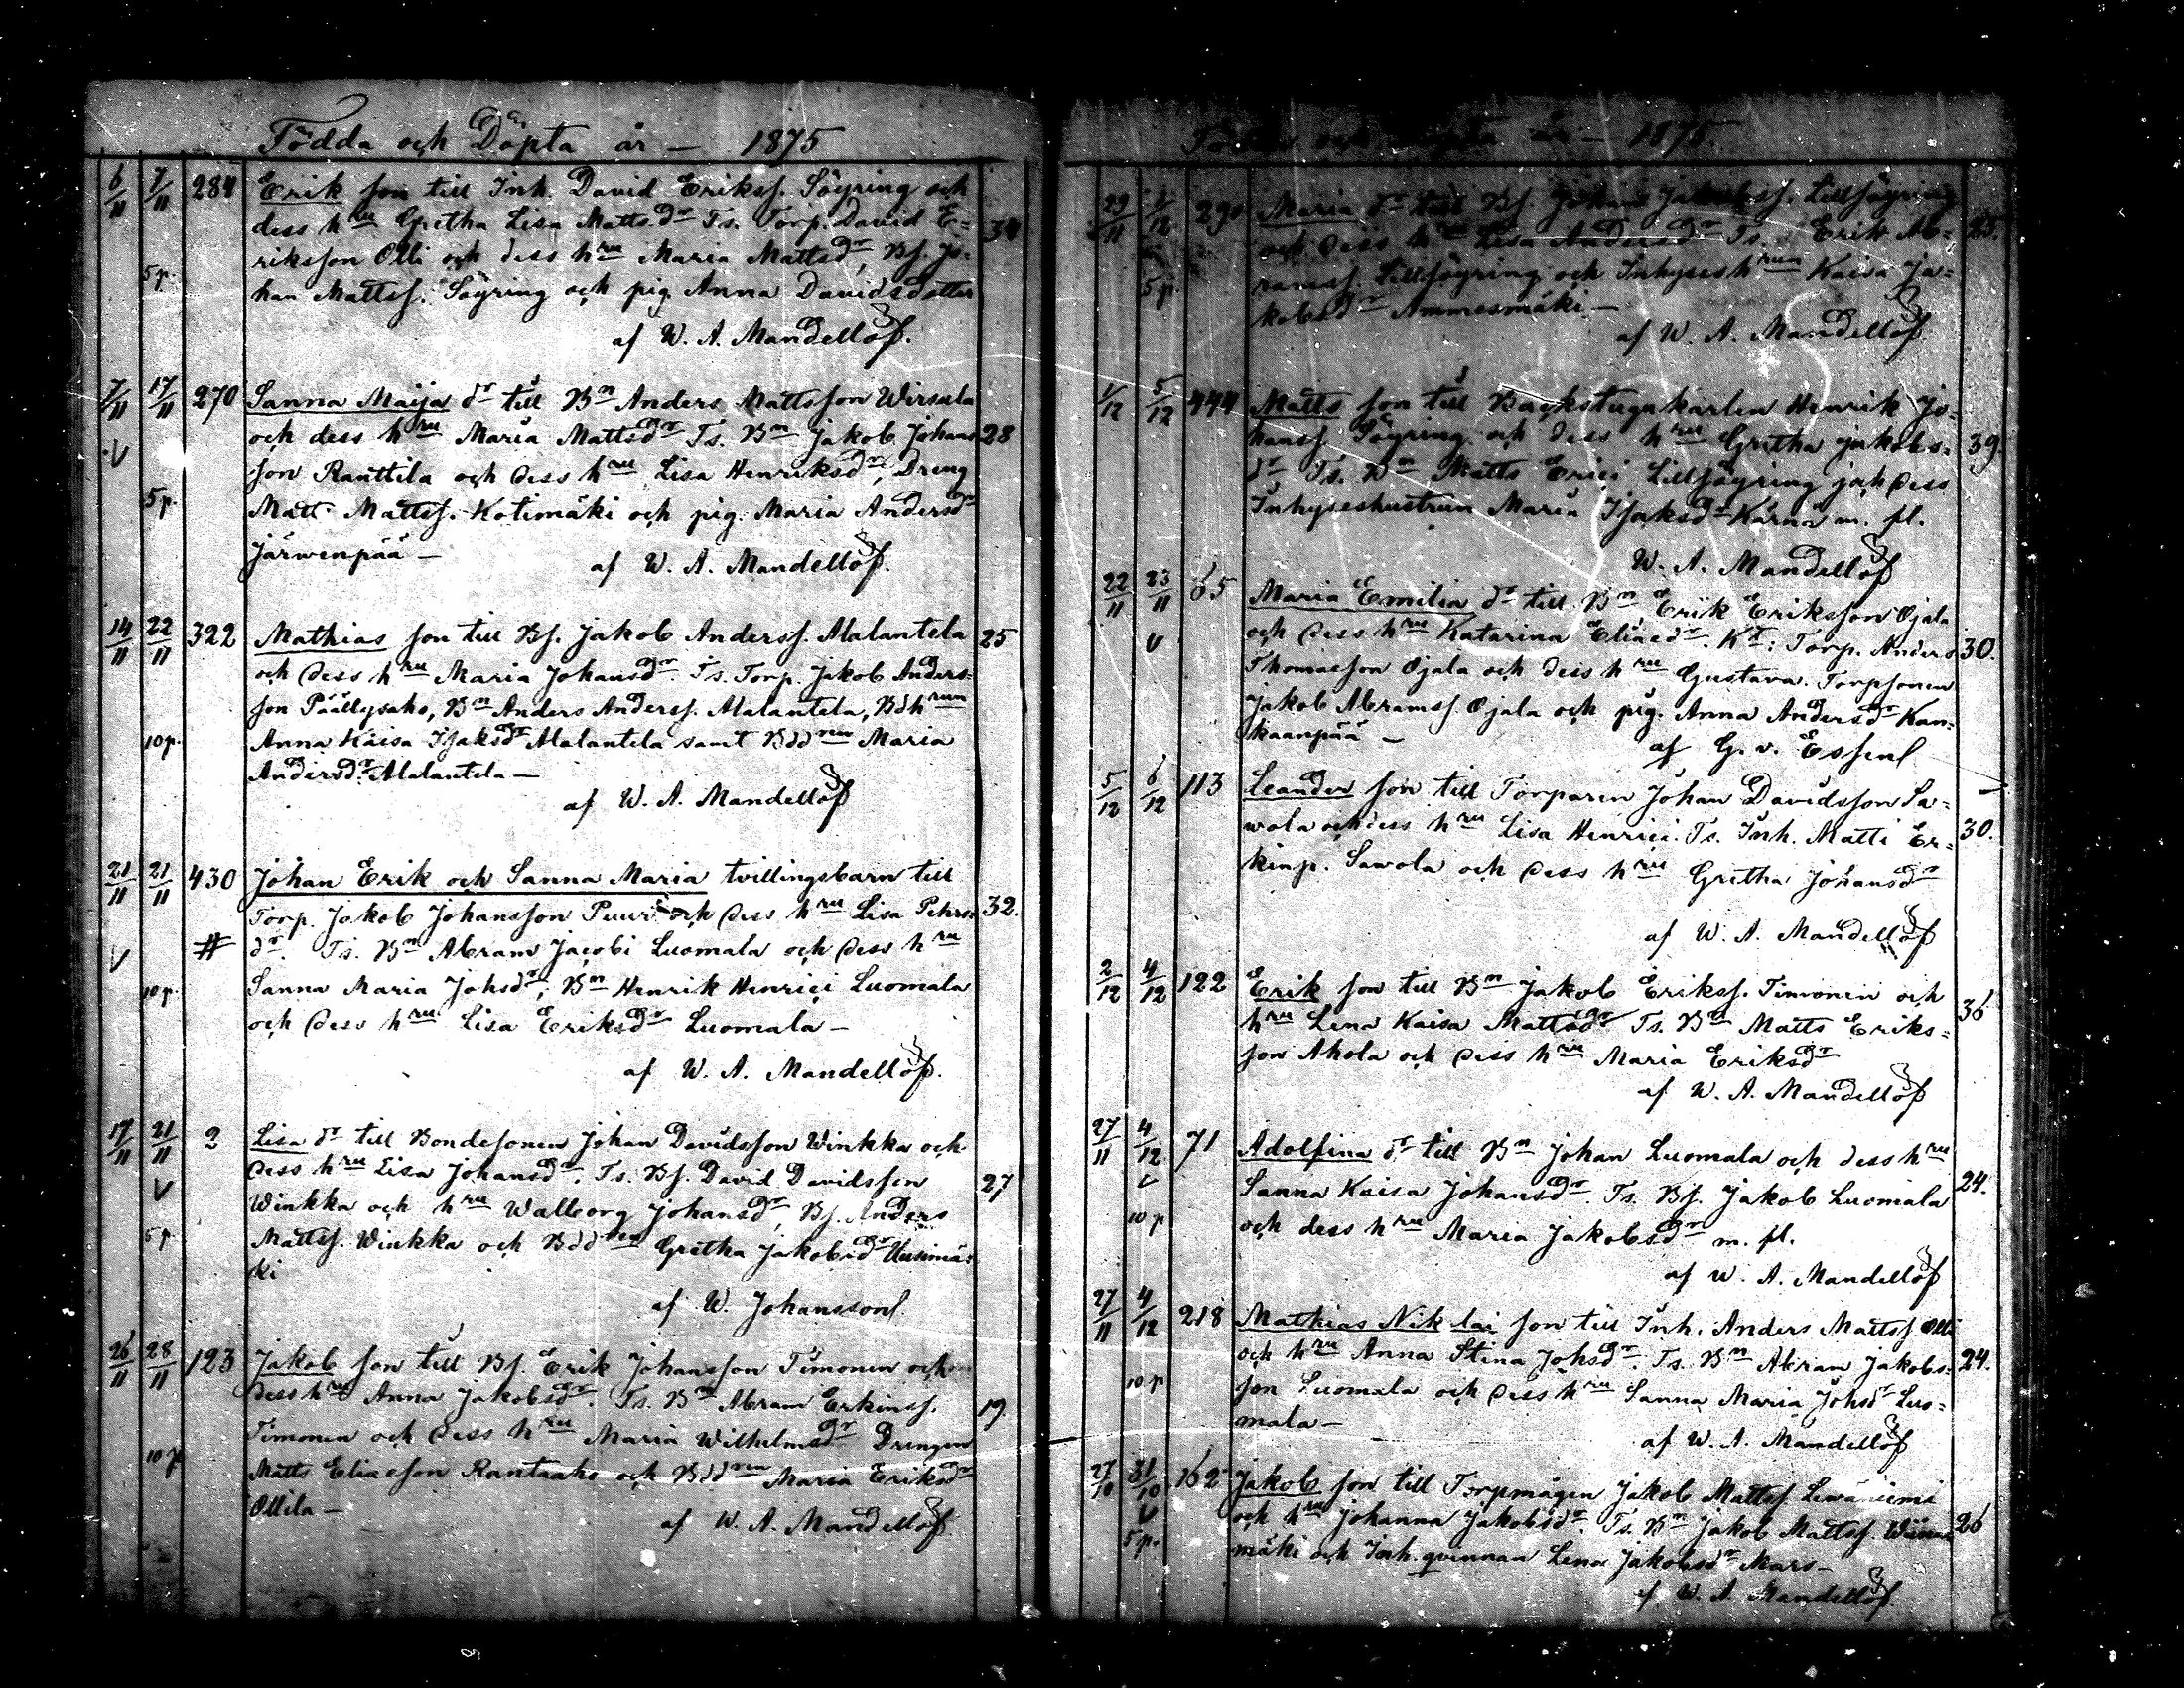 Födda och Döpta år — 1875
6/11 7/11 284 Erik son till Inh. David Erikss. Söyring och
dess hru Gretha Lisa Matts.dr Ts. Torp. David E= 34
riksson Olli och dess hru Maria Mattsdr, Bs. Jo-
5p. han Mattss. Söyring och pig. Anna Davidsdotter
af W. A. Mandellöf.
7/11 17/11 270 Sanna Maija dr till Bn Anders Mattsson Wirsula
V och dess hru Maria Mattsdr Ts. Bn Jakob Johans 28
son Ranttila och dess hru Lisa Henriksdr, Dreng
5p. Matt Mattss. Kotimäki och pig. Maria Andersdr
Järwenpää —
af W. A. Mandellöf.
14/11 22/11 322 Mathias son till Bs. Jakob Anderss. Alalantela 25
och dess hru Maria Johansdr. Ts. Torp. Jakob Anders=
son Päällysaho, Bn Anders Anderss. Alalantela, Bdhrun
10p. Anna Kaisa Isaksdr Alalantela samt Bddren Maria
Andersdr. Alalantela —
af W. A. Mandellöf
21/11 21/11 430 Johan Erik och Sanna Maria tvillingsbarn till
Torp. Jakob Johansson Puuri och dess hru Lisa Pehrs 32.
V # dr. Ts. Bn Abram Jacobi Luomala och dess hru
10p. Sanna Maria Johsdr, Bn Henrik Henrici Luomala
och dess hru Lisa Eriksdr Luomala —
af W. A. Mandellöf.
17/11 21/11 2 Lisa dr till Bondesonen Johan Davidsson Winkka och
V dess hru Lisa Johansdr. Ts. Bs. David Davidsson 27
Winkka och hru Walborg Johansdr, Bs. Anders
5p. Mattss. Winkka och Bddren Gretha Jakobsdr Uusimä=
ki
af W. Johansson
26/11 28/11 123 Jakob son till Bs. Erik Johansson Timonen och
dess hru Anna Jakobsdr. Ts. Bn Abram Erkinss. 19
Timonen och dess hru Maria Wilhelmsdr Drengen
10p Matts Eliasson Rantaaho och Bddren Maria Eriksdr
Ollila —
af W. A. Mandellöf
1875.
29/11 /12 290 Maria dr till Bs. Johan Jakobss. Lillsöyring
och dess hru Lisa Andersdr Ts. Erik Ab= 25.
5p. ramss. Lillsöyring och Inhyseshrun Kaisa Ja=
kobsdr Ammesmäki. —
af W. A. Mandellöf
1/12 5/12 444 Matts son till Backstugukarlen Henrik Jo=
hanss. Söyring och dess hru Gretha Jakobs= 39.
dr Ts. Bn Matts Erici Lillsöyring jah dess
Inhyseshustrun Maria Isaksdr Kärnä m. fl.
W. A. Mandellöf
22/11 23/11 65 Maria Emilia dr till Bn Erik Eriksson Ojala
V och dess hru Katarina Eliaedr. Kt: Torp. Anders 30.
Thomasson Ojala och dess hru Gustava. Torpsonen
Jakob Abramss. Ojala och pig. Anna Andersdr Kan=
kaanpää —
af G. v. Essen
5/12 6/12 113 Leander son till Torparen Johan Davidsson Sa=
wola och dess hru Lisa Henrici. Ts. Inh. Matti Er= 30.
kinp. Sawola och dess hru Gretha Johansdr
af W. A. Mandellöf
2/12 4/12 122 Erik son till Bn Jakob Erikss. Timonen och
hru Lena Kaisa Mattsdr Ts. Bn Matts Eriks= 36
son Ahola och dess hru Maria Eriksdr
af W. A. Mandellöf
27/11 4/12 71 Adolfina dr till Bn Johan Luomala och dess hru
V Sanna Kaisa Johansdr. Ts. Bs. Jakob Luomala 24.
10p och dess hru Maria Jakobsdr m. fl.
af W. A. Mandellöf
27/11 4/12 218 Mathias Niklai son till Inh. Anders Mattss. Olli
och hru Anna Stina Johsdr. Ts. Bn Abram Jakobs= 24.
10p son Luomala och dess hru Sanna Maria Johsdr Luo=
mala —
af W. A. Mandellöf
27/10 31/10 162 Jakob son till Torpmågen Jakob Mattss. Lewäniemi
V och hru Johanna Jakobsdr. Ts. Bn Jakob Mattss. 26
5p. mäki och Inh. qvinnan Lena Jakobsdr Mars —
af W. A. Mandellöf.